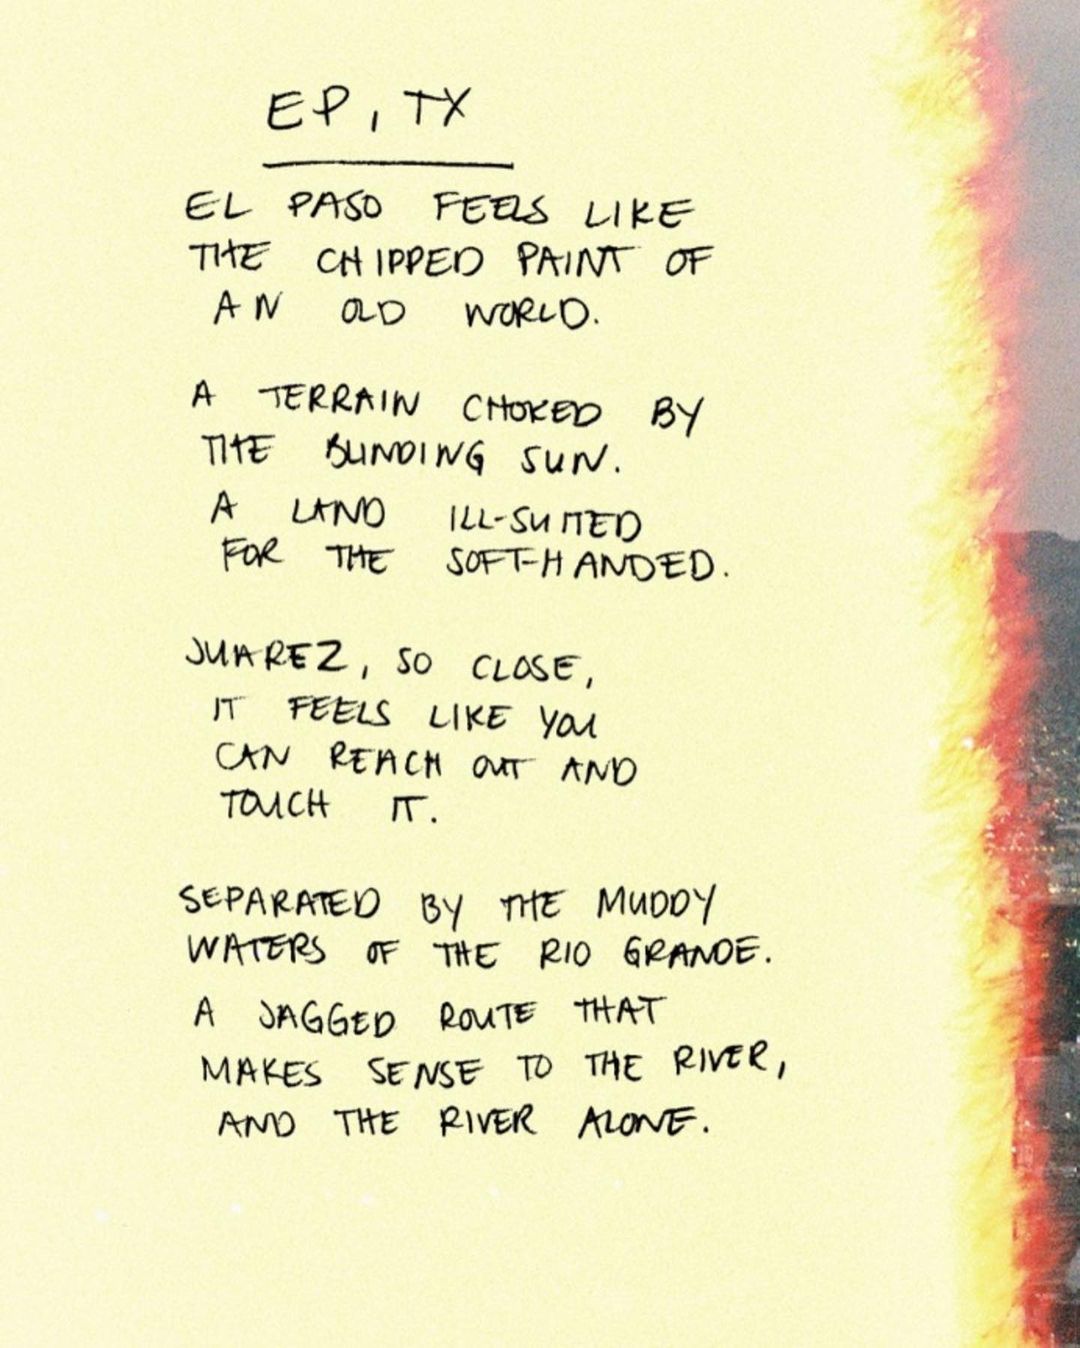 EP, TX
EL PASO FEELS LIKE
THE CHIPPED PAINT OF
AN OLD WORLD.
A TERRAIN CHOKED BY
THE BLINDING SUN.
A LAND ILL-SUITED
FOR THE SOFT-HANDED.
JUAREZ, SO CLOSE,
IT FEELS LIKE YOU
CAN REACH OUT AND
TOUCH IT.
SEPARATED BY THE MUDDY
WATERS OF THE RIO GRANDE.
A JAGGED ROUTE THAT
MAKES SENSE TO THE RIVER,
AND THE RIVER ALONE.